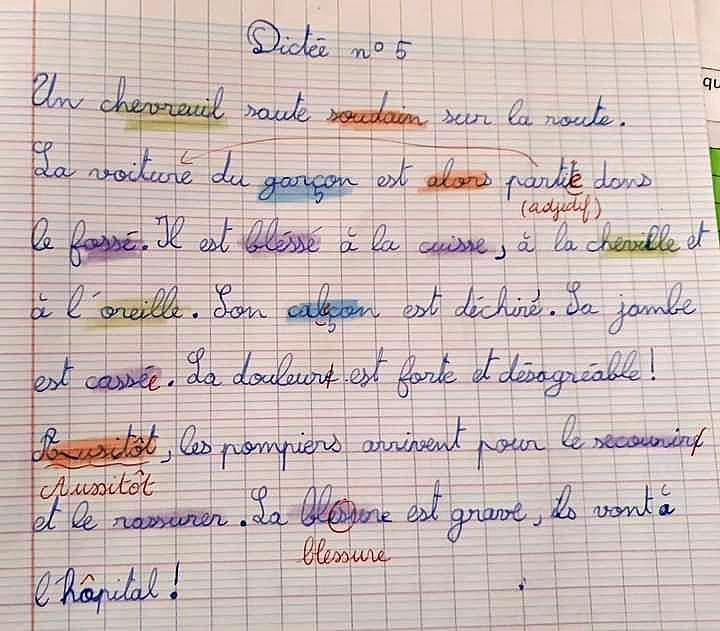 Dictée n° 5
Un chevreuil saute soudain sur la route.
La voiture du garçon est alors partie dans
(adjectif)
le fossé. Il est bléssé à la cuisse, à la cheville et
à l'oreille. Son caleçon est déchiré. Sa jambe
est cassée. La douleur est forte et désagréable !
Ausitôt, les pompiers arrivent pour le secourir
Aussitôt
et le rassurer. La blesure est grave, ils vont à
blessure
l'hôpital !
qu